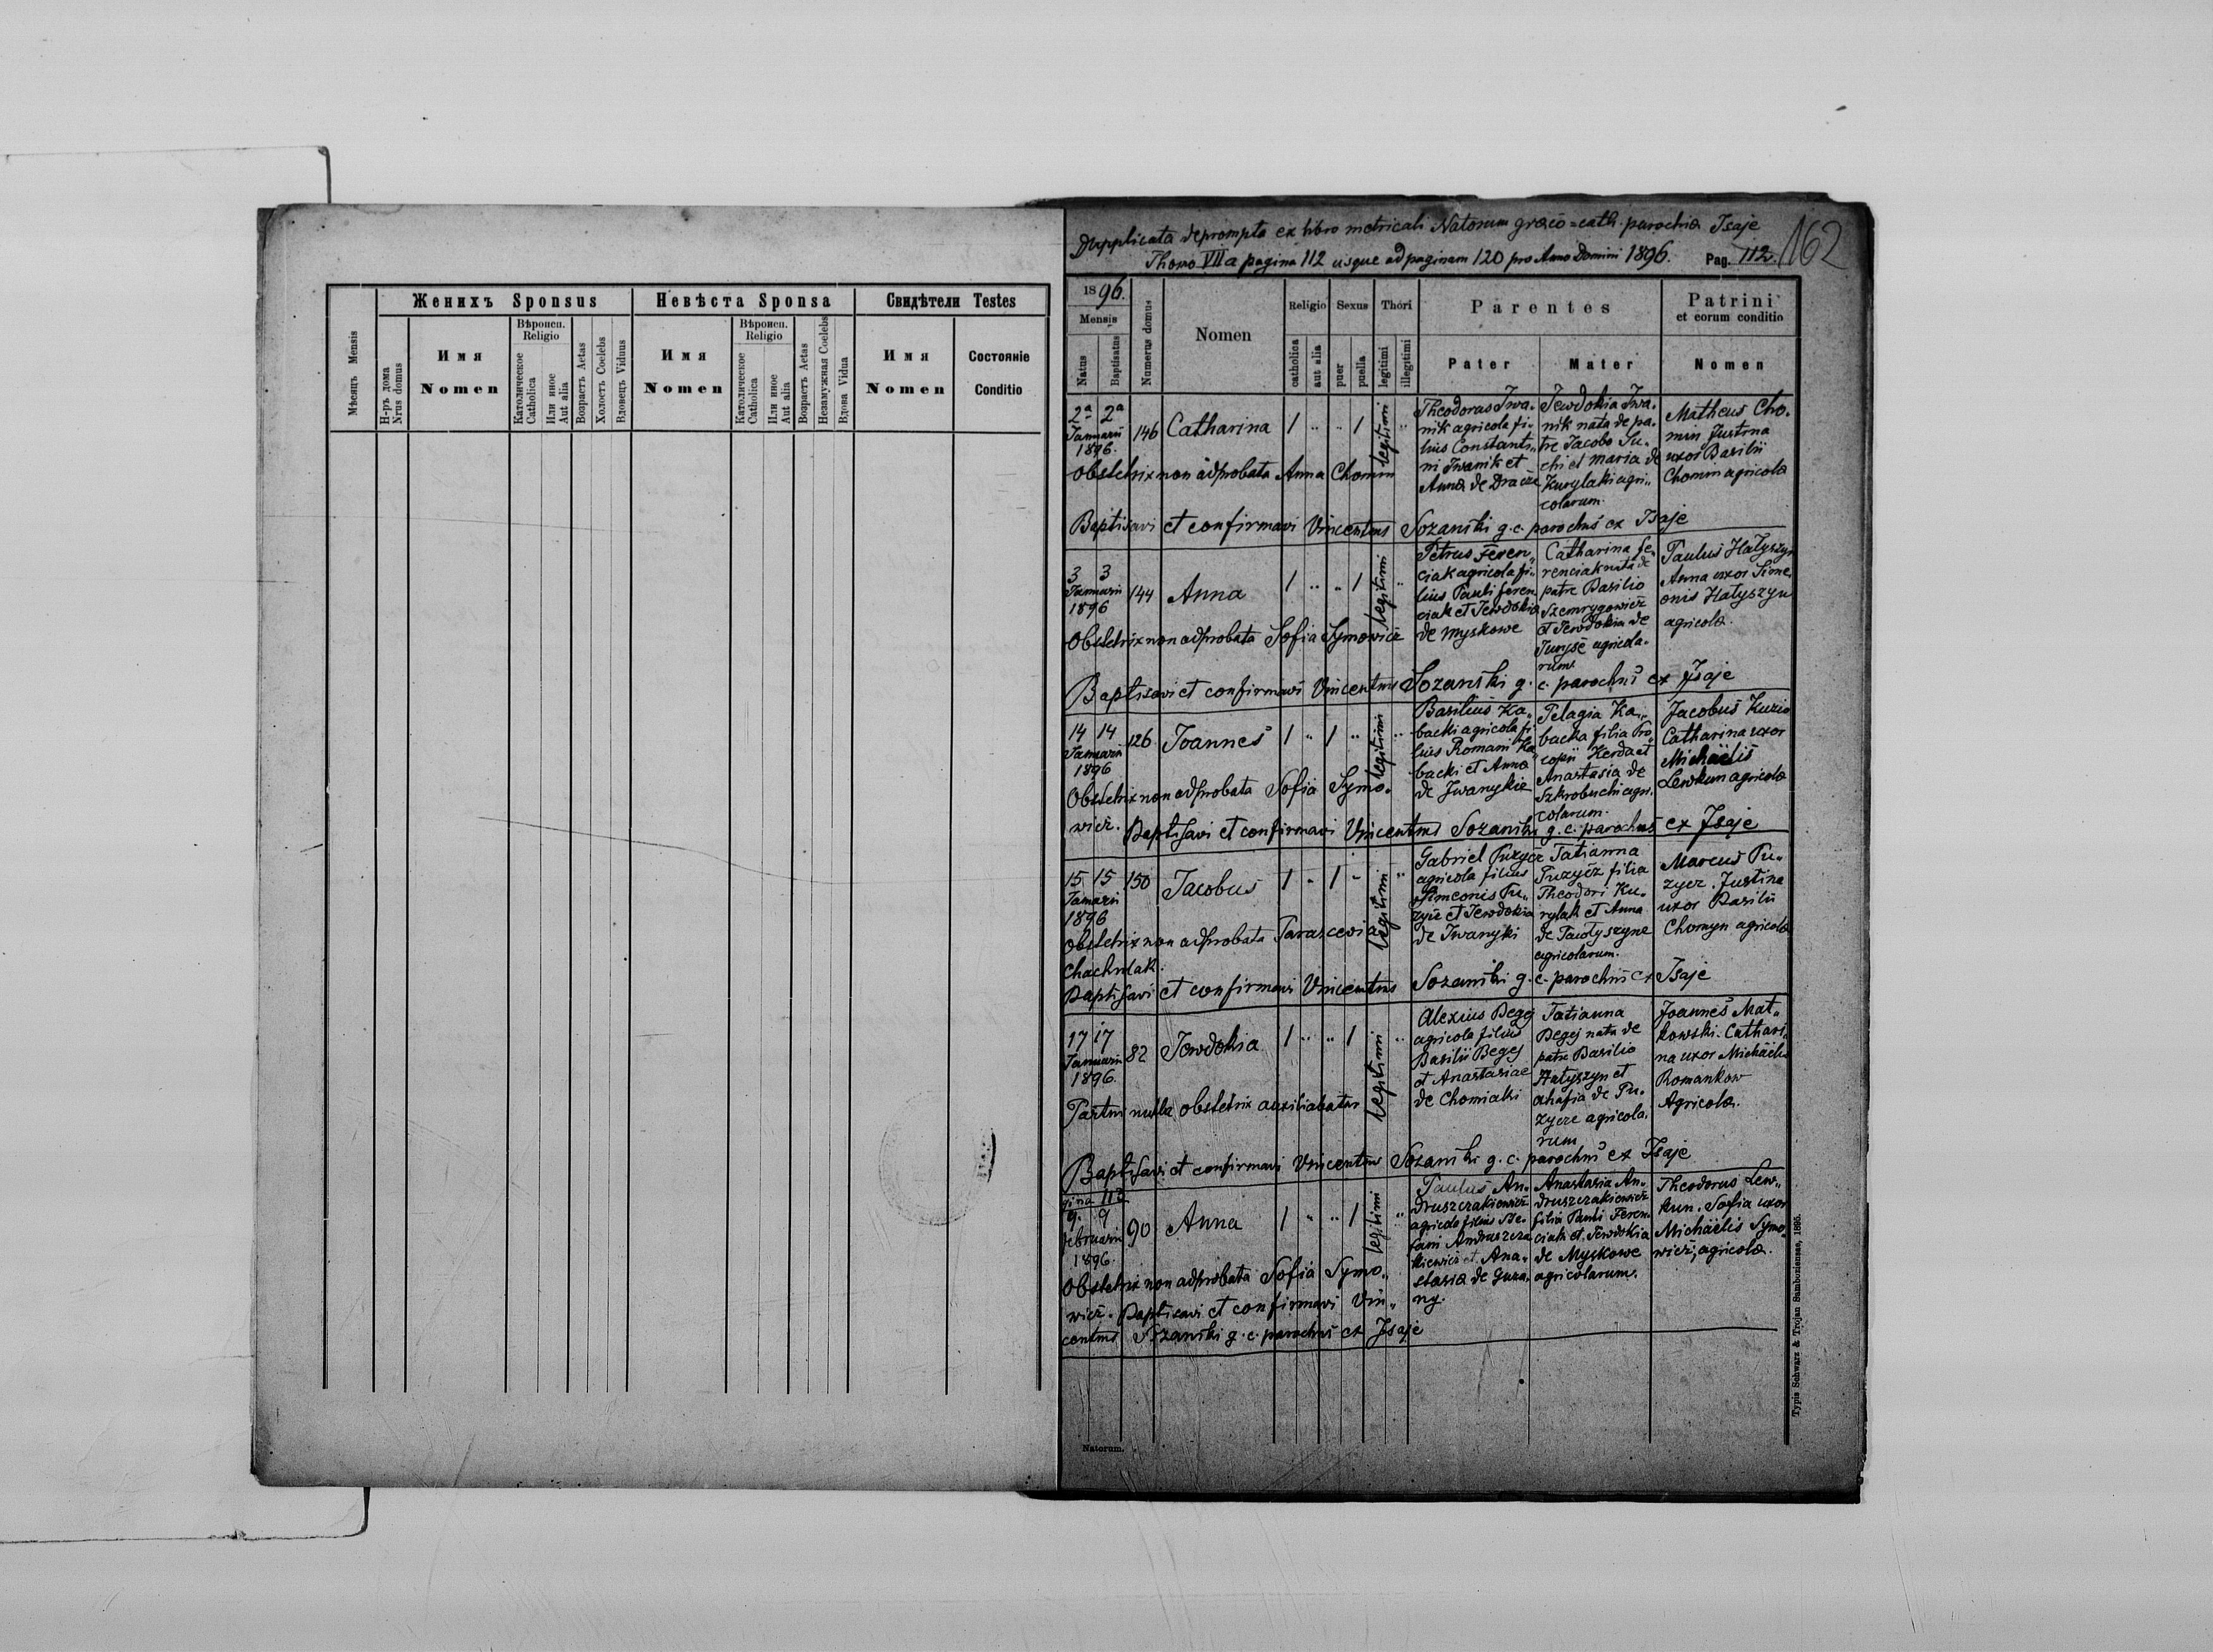 Женихъ Sponsus
Невѣста Sponsa
Свидѣтели Testes
Мѣсяцъ Mensis
Н-ръ дома
Nrus domus
Имя
Nomen
Вѣроисп.
Religio
Католическое
Catholica
Или иное
Aut alia
Возрастъ Aetas
Холостъ Coelebs
Вдовецъ Viduus
Имя
Nomen
Вѣроисп.
Religio
Католическое
Catholica
Или иное
Aut alia
Возрастъ Aetas
Незамужная Coelebs
Вдова Vidua
Имя
Nomen
Состояніе
Conditio
Dupplicata deprompta ex libro metricali Natorum graeco=cath. parochia Isaje
Thomo VII a pagina 112 usque ad paginam 120 pro Anno Domini 1896.
Pag. 112.
162
1896.
Mensis
Natus
Baptisatus
Numerus domus
Nomen
Religio
catholica
aut alia
Sexus
puer
puella
Thori
legitimi
illegitimi
Parentes
Pater
Mater
Patrini
et eorum conditio
Nomen
2a 2a
Januarii
1896.
146
Catharina
1 " " 1
legitimi
Theodorus Iwa-
nik agricola fi-
lius Constanti-
ni Iwanik et
Anna de
Jewdokia Iwa-
nik nata de pa-
tre Jacobo Su-
chi et Maria de
Kurylaki agri-
colarum.
Matheus Cho-
min Justina
uxor Basilii
Chomin agricola
Obstetrix non adprobata Anna Chomin
Baptisavi et confirmavi Vincentius Sozański g. c. parochus ex Isaje
3 3
Januarii
1896
144
Anna
1 " " 1
legitimi
Petrus Feren-
ciak agricola fi-
lius Pauli Feren
ciak et Jewdokia
de Myskowe
Catharina Fe-
renciak nata de
patre Basilio
Szemrygowicz
et Jewdokia de
agricola-
rum.
Paulus Hatyszyn
Anna uxor Sime
onis Hatyszyn
agricola.
Obstetrix non adprobata Sofia Symowicz
Baptisavi et confirmavi Vincentius Sozański g. c. parochus ex Isaje
14 14
Januarii
1896
126
Joannes
1 " 1 "
legitimi
Basilius Ka-
backi agricola fi
lius Romani Ka
backi et Anna
de Iwanykie
Pelagia Ka-
backa filia Pro
copii Kerda et
Anastasia de
Szkrobuchi agri-
colarum.
Jacobus
Catharina uxor
Michaëlis
Lewkun agricola
Obstetrix non adprobata Sofia Symo-
wicz. Baptisavi et confirmavi Vincentius Sozański g. c. parochus ex Isaje
15 15
Januarii
1896
150
Jacobus
1 - 1 -
legitimi
Gabriel Puzycz
agricola filius
Simeonis Pu-
zycz et Jewdokia
de Iwanyki
Tatianna
Puzycz filia
Theodori Ku-
rylak et Anna
de
agricolarum.
Marcus Pu-
zycz. Justina
uxor Basilii
Chomyn agricola
Obstetrix non adprobata Parascevia
Chachulak.
Baptisavi et confirmavi Vincentius Sozański g. c. parochus ex Isaje
17 17
Januarii
1896.
82
Jewdokia
1 " " 1
legitimi
Alexius Begej
agricola filius
Basilii Begej
et Anastasiae
de Chomiaki
Tatianna
Begej nata de
patre Basilio
Hatyszyn et
Ahafia de Pu-
zycze agricola-
rum
Joannes Mat-
kowski. Cathari-
na uxor Michaëlis
Romankow
Agricola.
Partui nulla obstetrix auxiliabatur
Baptisavi et confirmavi Vincentius Sozański g. c. parochus ex Isaje
gina 113
9. 9
Februarii
1896.
90
Anna
1 " " 1
legitimi
Paulus An-
druszczakiewicz
agricola filius Ste-
fani Andruszcza
kiewicz et Ana-
stasia de Guza-
ny.
Anastasia An-
druszczakiewicz
filia Pauli Feren
ciak et Jewdokia
de Myskowe
agricolarum.
Theodorus Lew-
kun. Sofia uxor
Michaëlis Symo-
wicz, agricola.
Obstetrix non adprobata Sofia Symo-
wicz. Baptisavi et confirmavi Vin-
centius Sozański g. c. parochus ex Isaje
Natorum.
Typis Schwarz & Trojan Samboriensas, 1895.